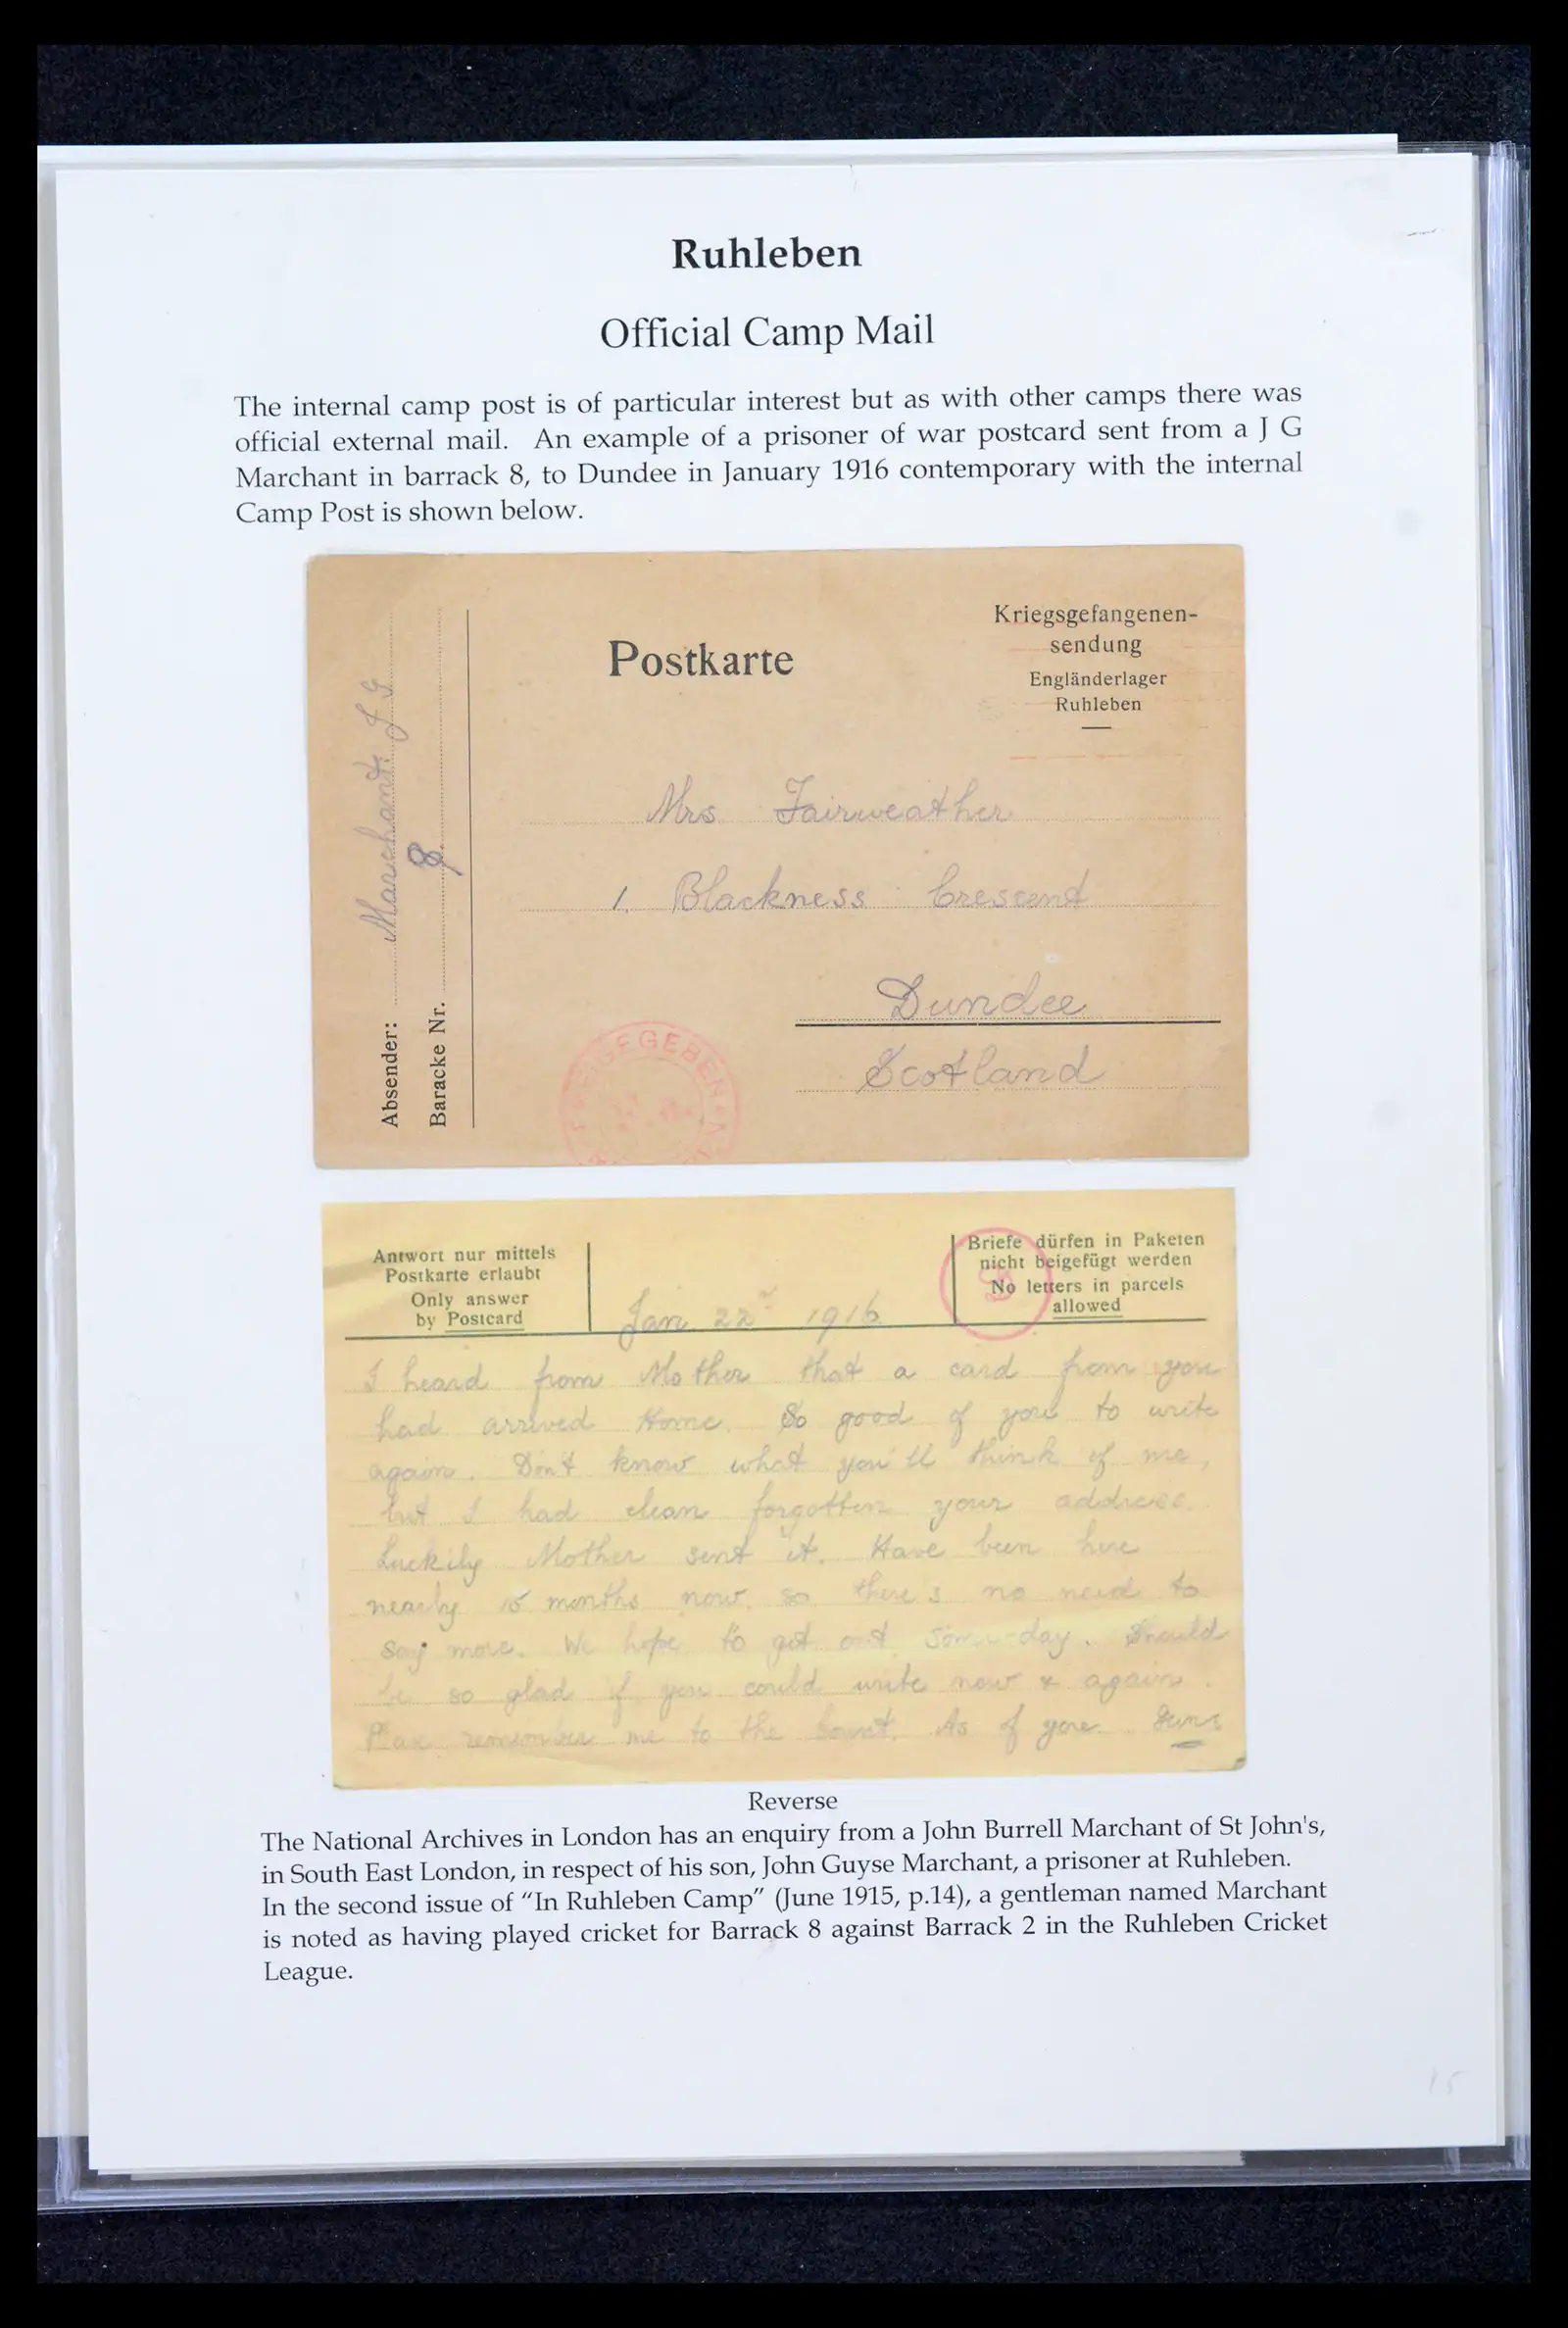 Ruhleben
Official Camp Mail
The internal camp post is of particular interest but as with other camps there was
official external mail. An example of a prisoner of war postcard sent from a J G
Marchant in barrack 8, to Dundee in January 1916 contemporary with the internal
Camp Post is shown below.
Postkarte
Kriegsgefangenen-
sendung
Engländerlager
Ruhleben
Absender: Marchant. J G
Baracke Nr. 8
Mrs Fairweather
1. Blackness Crescent
Dundee
Scotland
FREIGEGEBEN
Antwort nur mittels
Postkarte erlaubt
Only answer
by Postcard
Jan. 22 1916
Briefe dürfen in Paketen
nicht beigefügt werden
No letters in parcels
allowed
I heard from Mother that a card from you
had arrived Home. So good of you to write
again. Don't know what you'll think of me,
but I had clean forgotten your address.
Luckily Mother sent it. Have been here
nearly 15 months now, so there's no need to
say more. We hope to get out some-day. Should
be so glad if you could write now & again.
remember me to the Count. As of yore.
Reverse
The National Archives in London has an enquiry from a John Burrell Marchant of St John's,
in South East London, in respect of his son, John Guyse Marchant, a prisoner at Ruhleben.
In the second issue of “In Ruhleben Camp” (June 1915, p.14), a gentleman named Marchant
is noted as having played cricket for Barrack 8 against Barrack 2 in the Ruhleben Cricket
League.
15